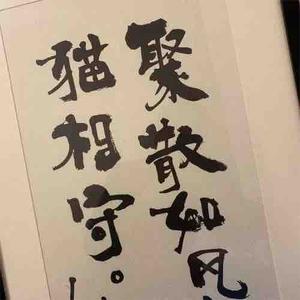 聚散如风
猫相守。